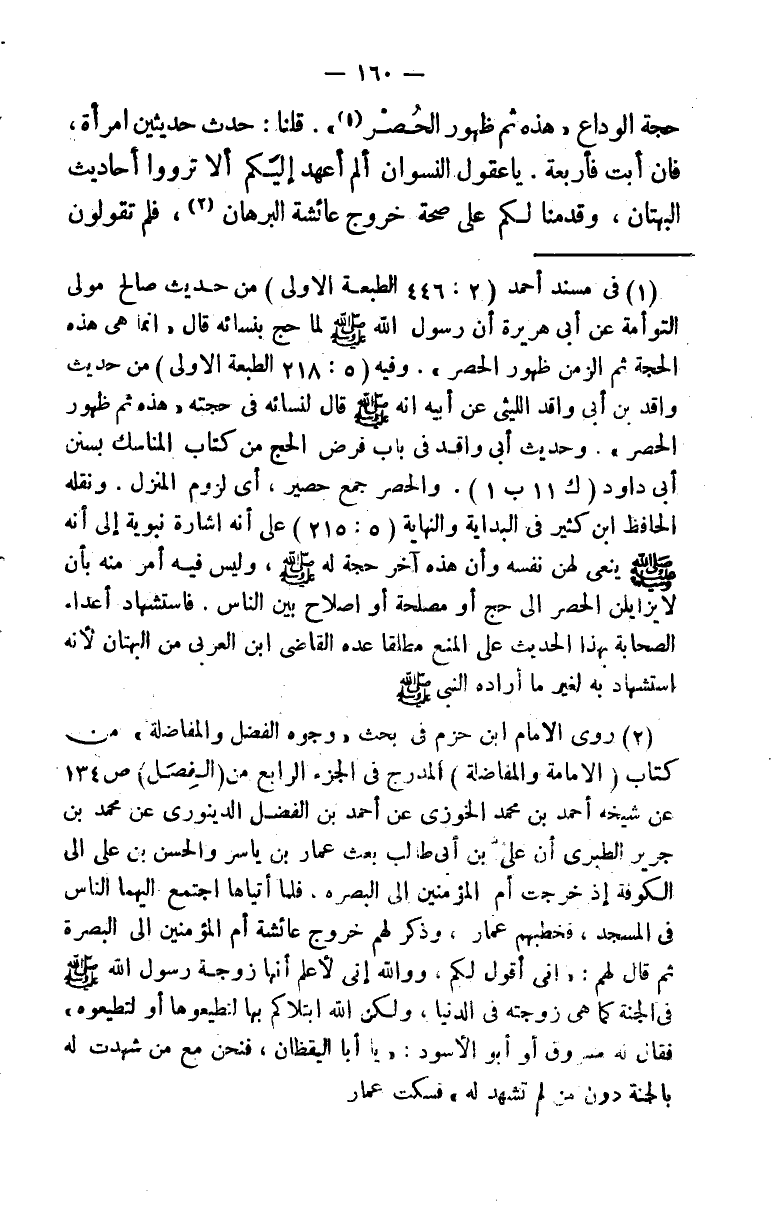 — ١٦٠ —
حجة الوداع « هذه ثم ظهور الحُصْر (١) » . قلنا : حدث حديثين امرأة ،
فان أبت فأربعة . ياعقول النسوان ألم أعهد إليكم ألا ترووا أحاديث
البهتان ، وقدمنا لكم على صحة خروج عائشة البرهان (٢) ، فلم تقولون
(١) فى مسند أحمد ( ٢ : ٤٤٦ الطبعة الاولى ) من حديث صالح مولى
التوأمة عن أبى هريرة أن رسول الله ﷺ لما حج بنسائه قال « انما هى هذه
الحجة ثم الزمن ظهور الحصر » . وفيه ( ٥ : ٢١٨ الطبعة الاولى ) من حديث
واقد بن أبى واقد الليثى عن أبيه انه ﷺ قال لنسائه فى حجته « هذه ثم ظهور
الحصر » . وحديث أبى واقد فى باب فرض الحج من كتاب المناسك بسنن
أبى داود ( ك ١١ ب ١ ) . والحصر جمع حصير ، أى لزوم المنزل . ونقله
الحافظ ابن كثير فى البداية والنهاية ( ٥ : ٢١٥ ) على أنه اشارة نبوية إلى أنه
ﷺ ينعى لهن نفسه وأن هذه آخر حجة له ﷺ ، وليس فيه أمر منه بأن
لا يزايلن الحصر الى حج أو مصلحة أو اصلاح بين الناس . فاستشهاد أعداء
الصحابة بهذا الحديث على المنع مطلقا عده القاضى ابن العربى من البهتان لأنه
استشهاد به لغير ما أراده النبى ﷺ
(٢) روى الامام ابن حزم فى بحث « وجوه الفضل والمفاضلة » من
كتاب ( الامامة والمفاضلة ) المدرج فى الجزء الرابع من (الفِصَل) ص ١٣٤
عن شيخه أحمد بن محمد الخوزى عن أحمد بن الفضل الدينورى عن محمد بن
جرير الطبرى أن على بن أبى طالب بعث عمار بن ياسر والحسن بن على الى
الكوفة إذ خرجت أم المؤمنين الى البصره . فلما أتياها اجتمع اليهما الناس
فى المسجد ، فخطبهم عمار ، وذكر لهم خروج عائشة أم المؤمنين الى البصرة
ثم قال لهم : « انى أقول لكم ، ووالله إنى لأعلم أنها زوجة رسول الله ﷺ
فى الجنة كما هى زوجته فى الدنيا ، ولكن الله ابتلاكم بها لتطيعوها أو لتطيعوه »
فقال له مسروق أو أبو الأسود : « يا أبا اليقظان ، فنحن مع من شهدت له
بالجنة دون من لم تشهد له » فسكت عمار